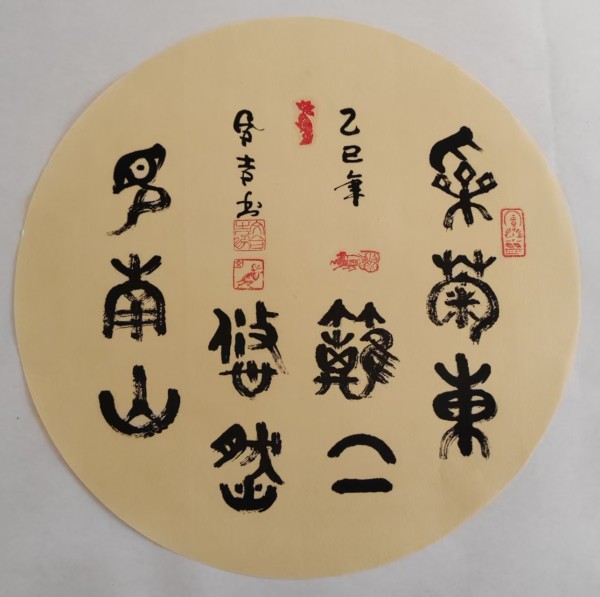 采菊東
籬下
悠然
見南山
乙巳年
书